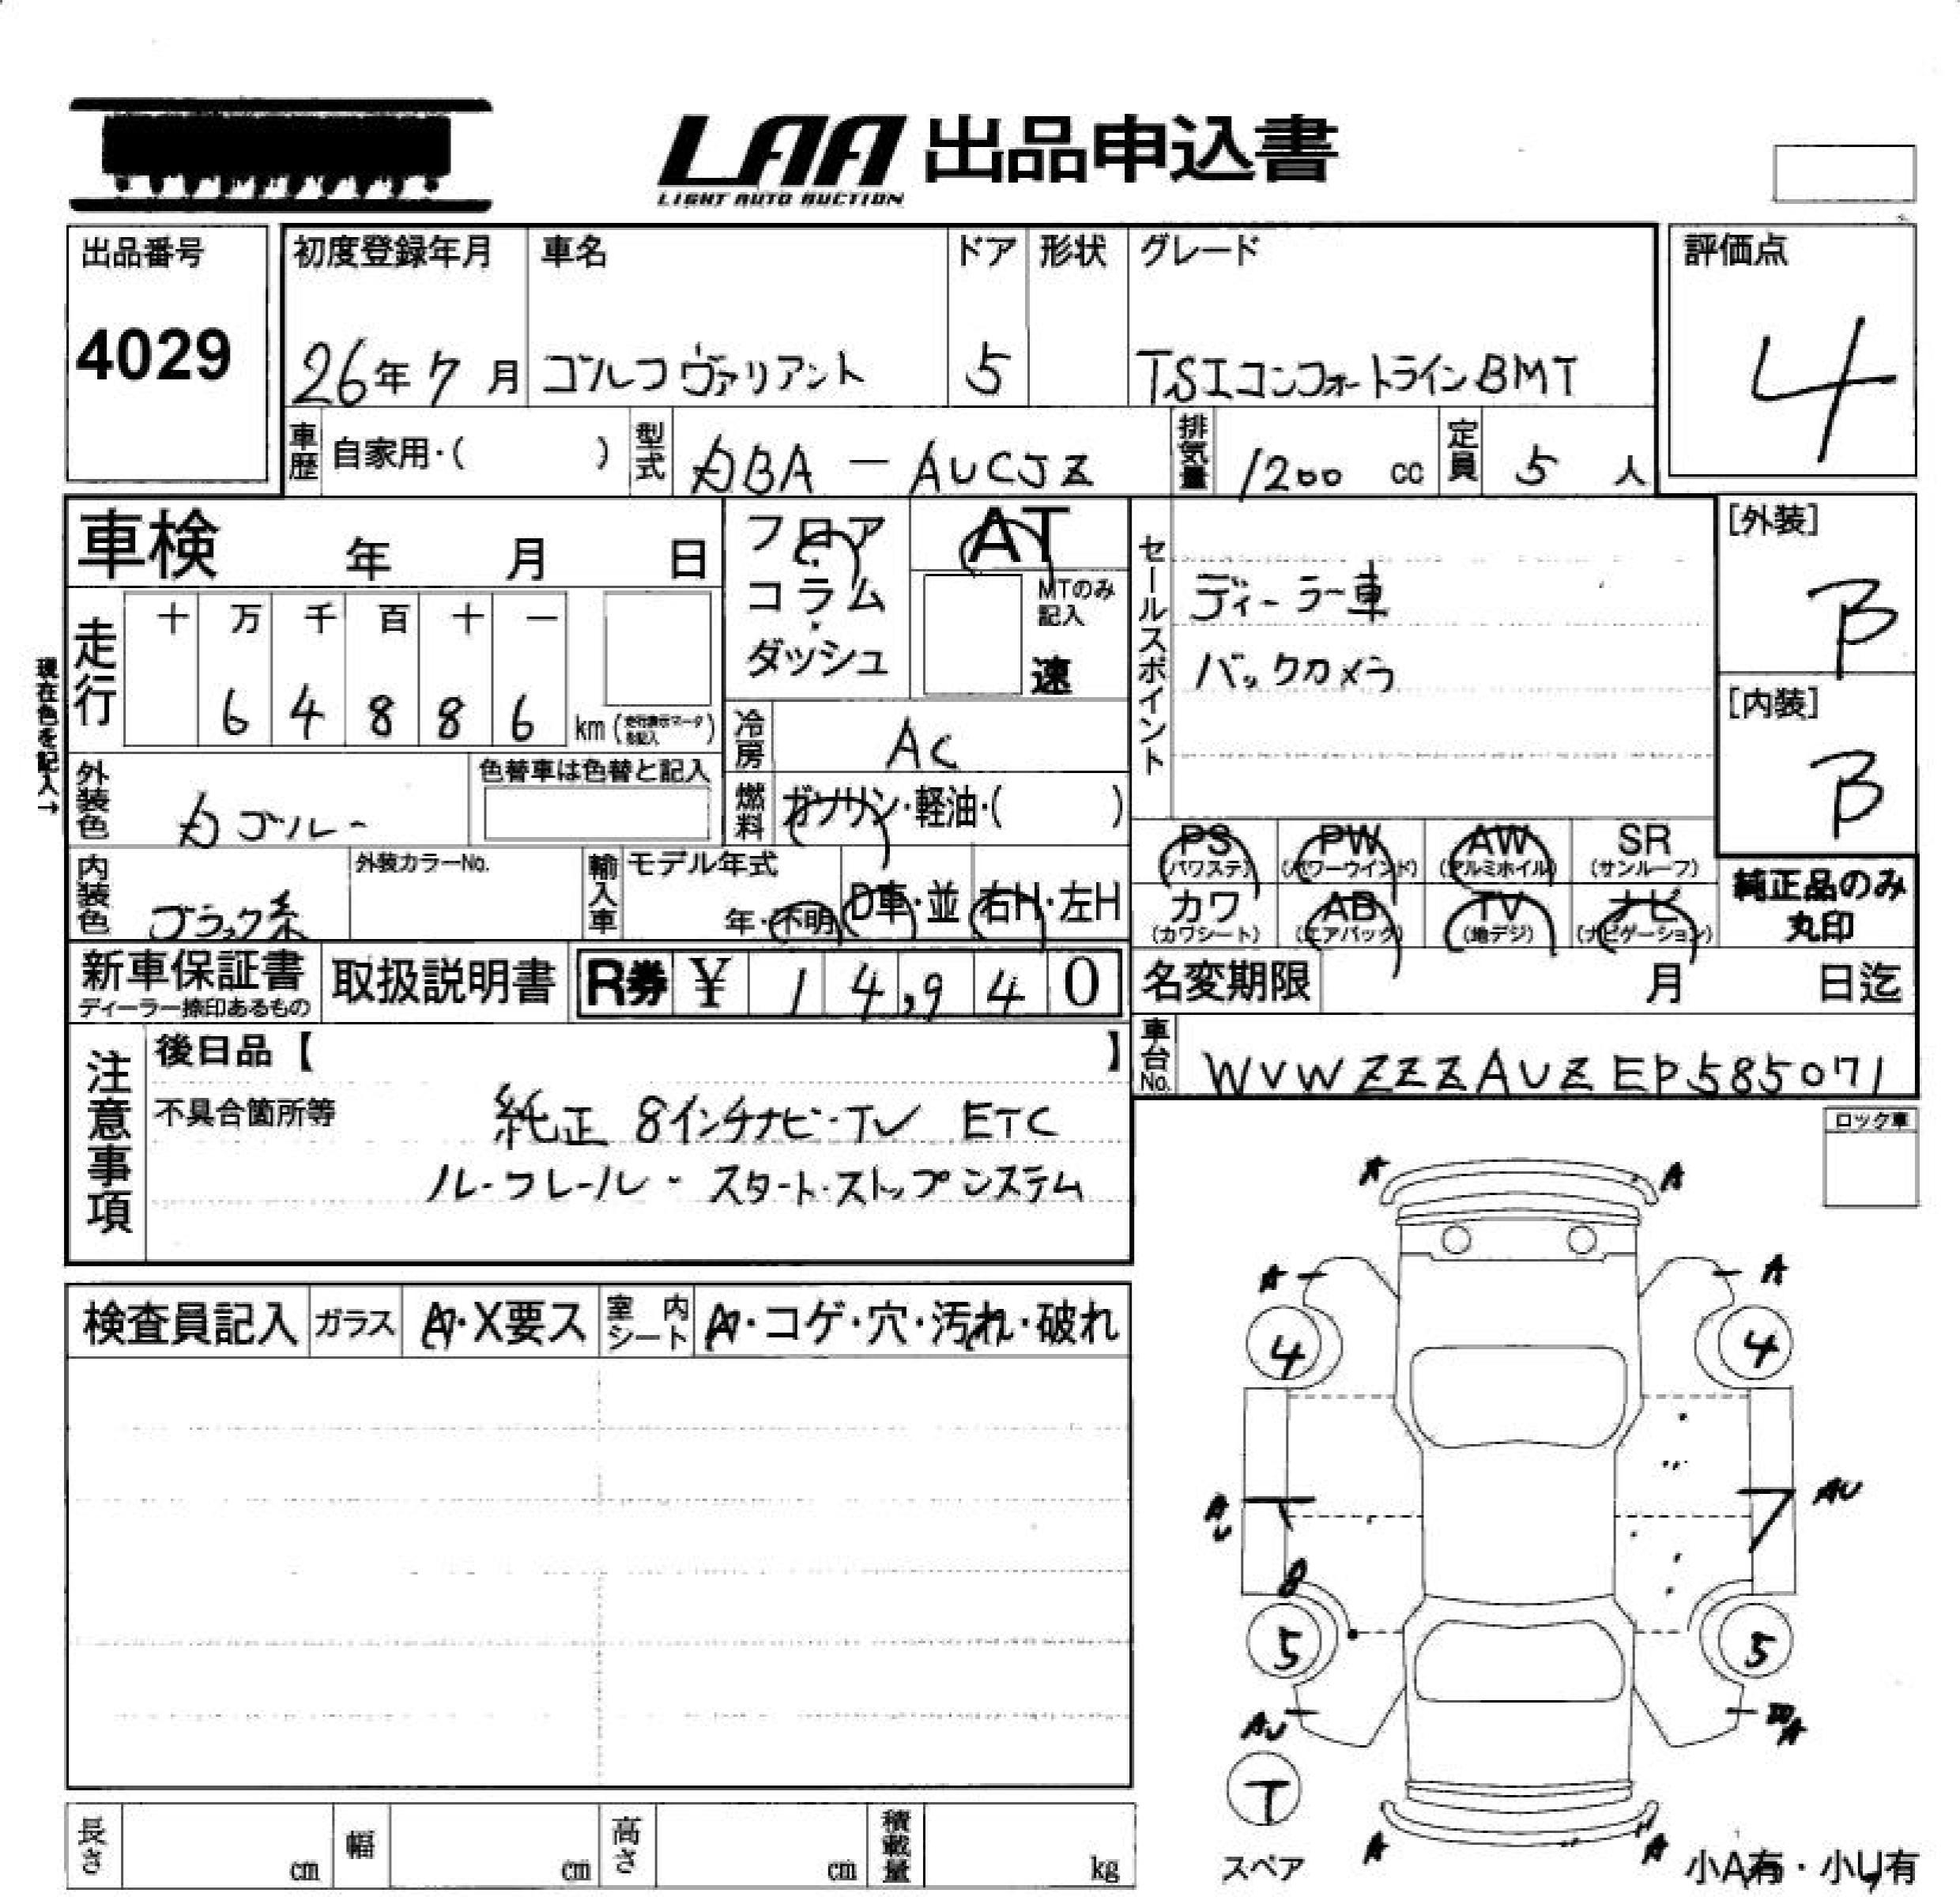 LAA 出品申込書
LIGHT AUTO AUCTION
出品番号 初度登録年月 車名 ドア 形状 グレード 評価点
4029 26年7月 ゴルフヴァリアント 5 TSIコンフォートラインBMT 4
車歴 自家用・( ) 型式 DBA - AUCJZ 排気量 1200 cc 定員 5 人
車検 年 月 日
フロア・コラム・ダッシュ
AT
MTのみ記入
速
セールスポイント
ディーラー車
バックカメラ
[外装]
B
[内装]
B
現在色を記入→
走行 十 万 千 百 十 一
6 4 8 8 6 km (走行表示マークを記入)
冷房 AC
外装色 カゴルー
色替車は色替と記入
燃料 ガソリン・軽油・( )
PS (パワステ) PW (パワーウインド) AW (アルミホイル) SR (サンルーフ)
カワ (カワシート) AB (エアバック) TV (地デジ) ナビ (ナビゲーション)
純正品のみ
丸印
内装色 ブラック系 外装カラーNo. 輸入車 モデル年式 年・不明 D車・並 右H・左H
新車保証書 取扱説明書 R券 ¥ 1 4,9 4 0 名変期限 月 日迄
ディーラー捺印あるもの
車台No. WVWZZZAUZEP585071
注意事項
後日品【 】
不具合箇所等 純正 8インチナビ・TV ETC
ルーフレール・スタート・ストップシステム
ロック車
A A
A A
4 4
検査員記入 ガラス A・X要ス 室内シート A・コゲ・穴・汚れ・破れ
AU AU
8
5 5
AU A
T
スペア
A A
小A有・小U有
長さ cm 幅 cm 高さ cm 積載量 kg